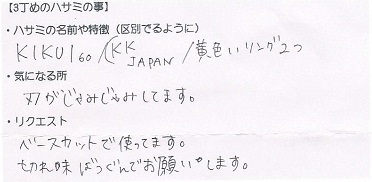 【3丁めのハサミの事】
・ハサミの名前や特徴（区別でるように）
KIKUI60/(KK JAPAN/黄色いリング2つ
・気になる所
刃がじゃみじゃみしてます。
・リクエスト
ベースカットで使ってます。
切れ味ばつぐんでお願いします。